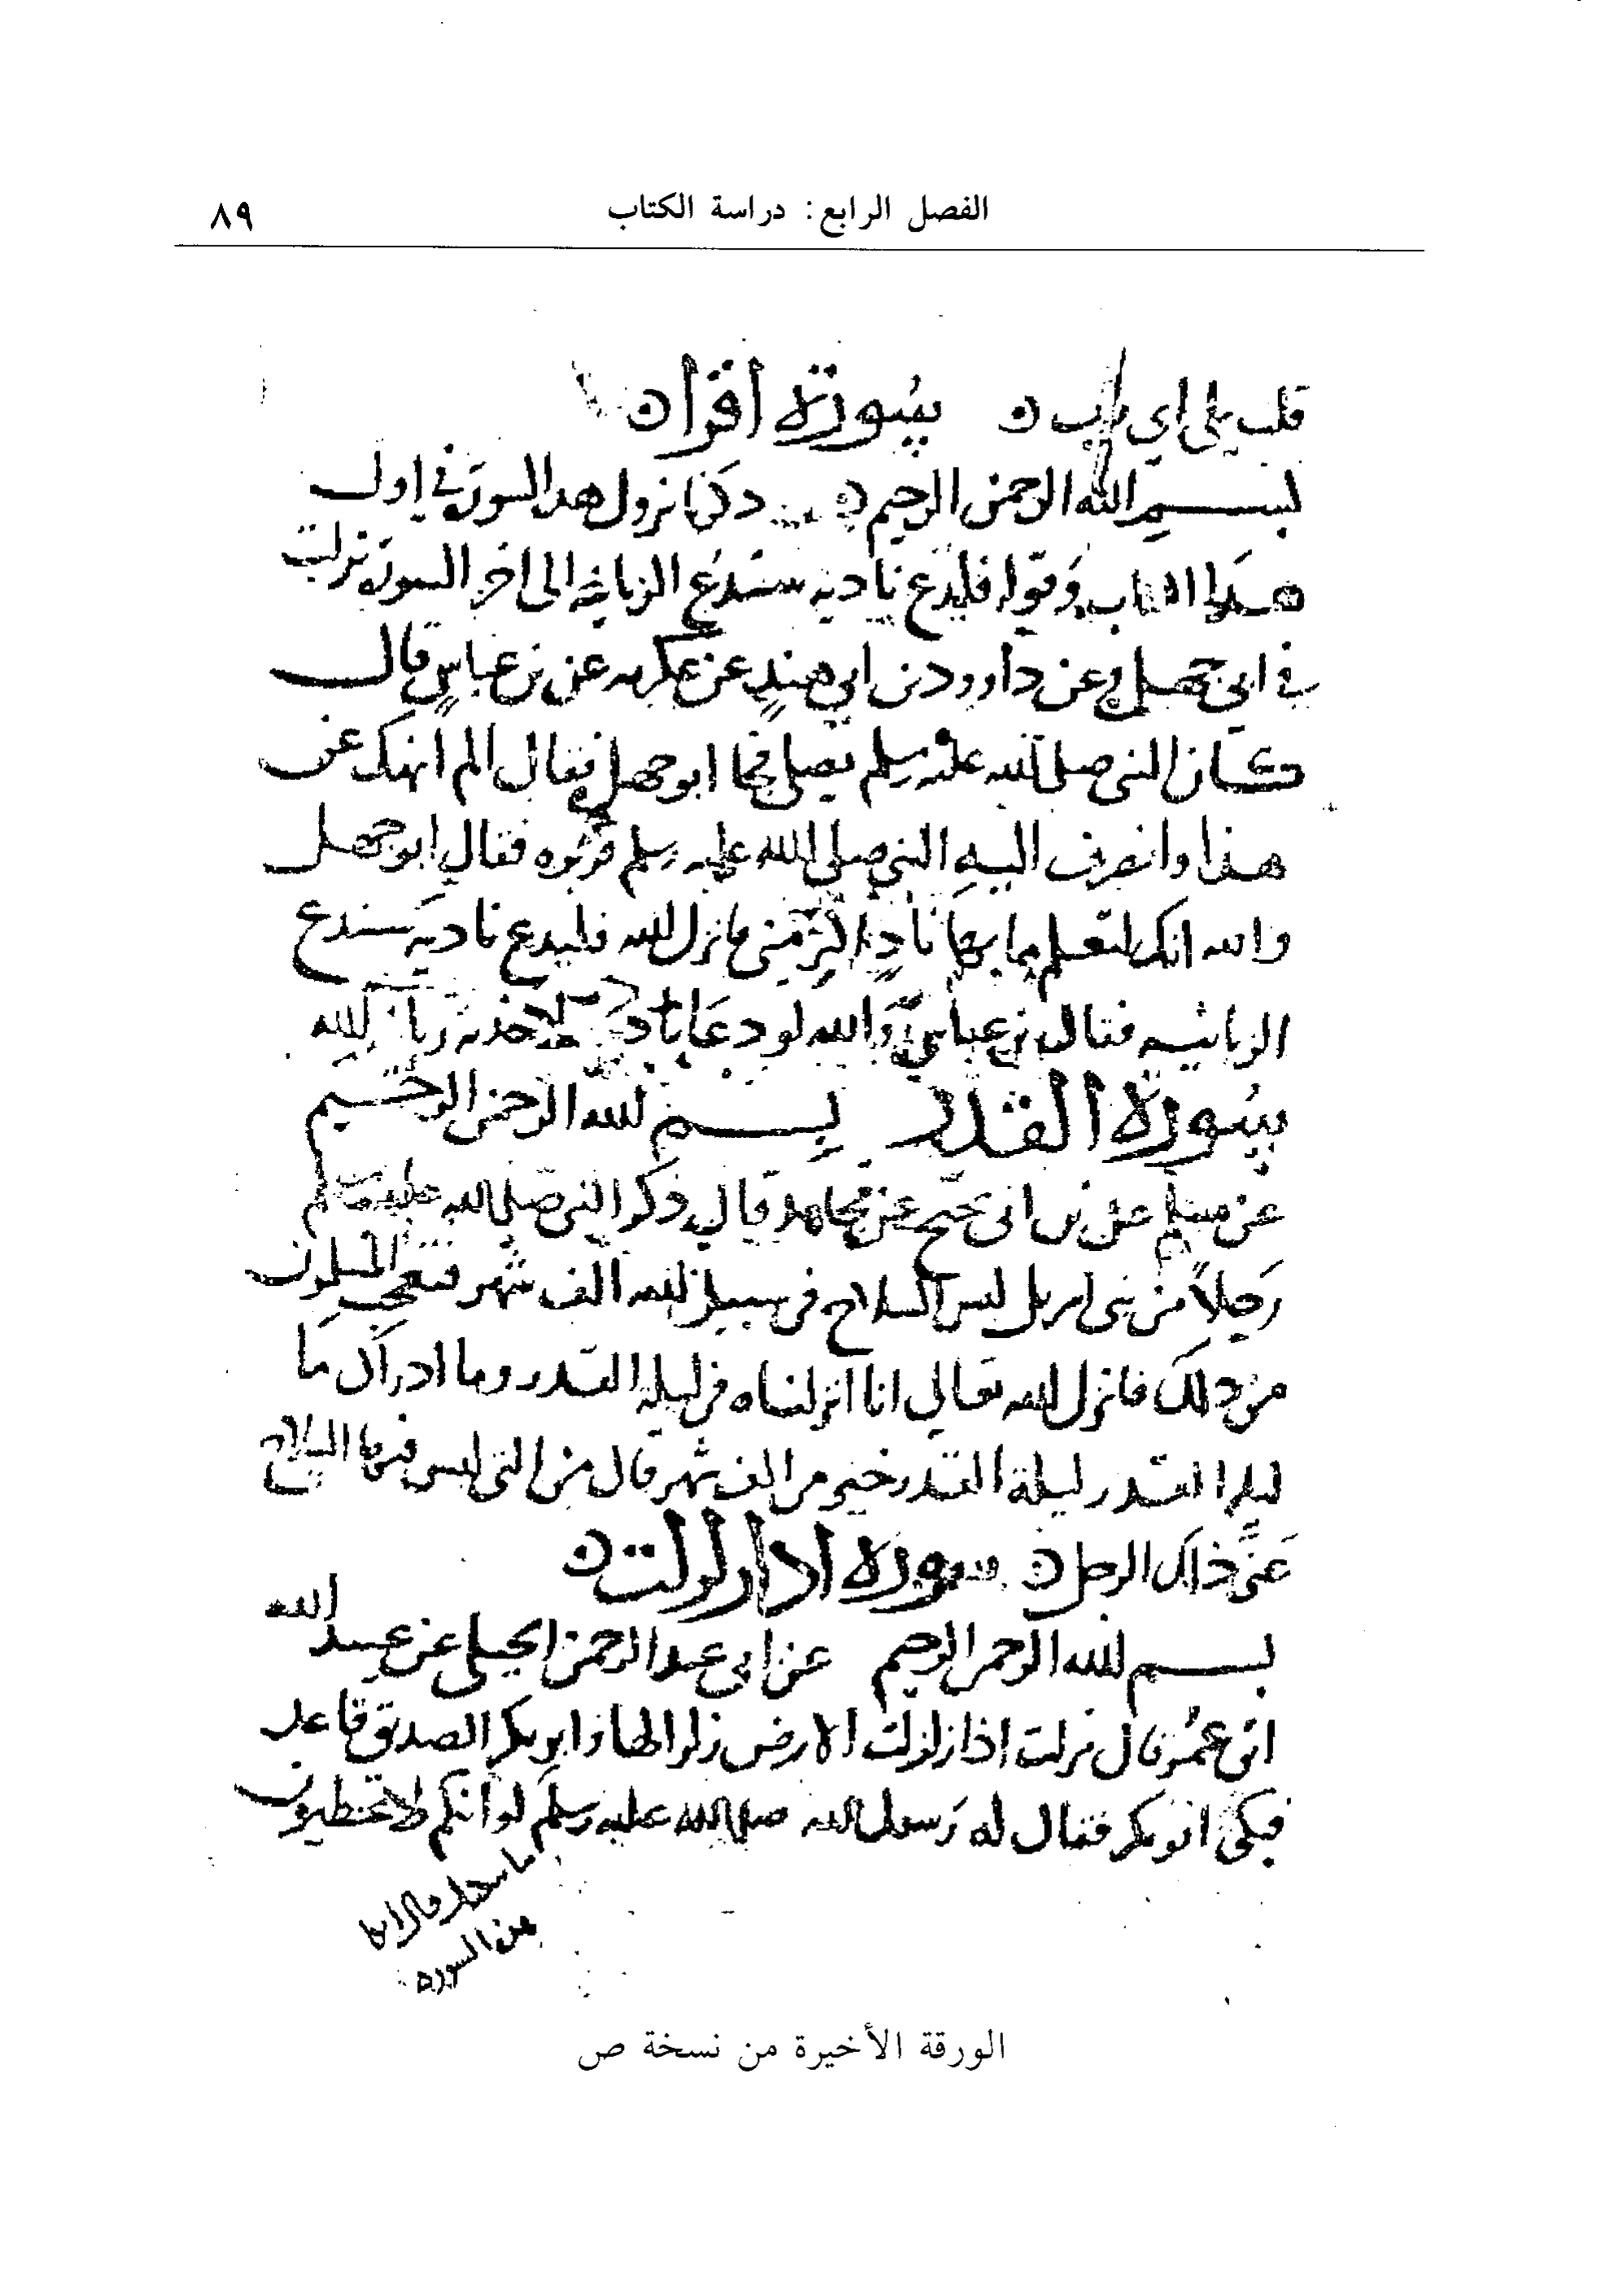 الفصل الرابع: دراسة الكتاب
٨٩
قلت بلى اي رب ن سورة اقرا ن
بسم الله الرحمن الرحيم ذكرنا نزول هذا السورة في اول
هذا الكتاب وقوله فليدع ناديه سندع الزبانية الى اخر السورة نزلت
في ابي جهل عن داوود بن ابي هند عن عكرمه عن بن عباس قال
كان النبي صلى الله عليه وسلم يصلي فجا ابو جهل فقال الم انهك عن
هذا وانصرف اليه النبي صلى الله عليه وسلم فزبره فقال ابو جهل
والله انك لتعلم ما بها ناد اكثر مني فانزل الله فليدع ناديه سندع
الزبانيه فقال بن عباس والله لو دعا ناديه لاخذته زبانية الله
سورة القدر بسم الله الرحمن الرحيم
عن مسلم عن بن ابي نجيح عن مجاهد قال ذكر النبي صلى الله عليه وسلم
رجلا من بني اسريل لبس السلاح في سبيل الله الف شهر فتعجب المسلمون
من ذلك فانزل الله تعالي انا انزلناه في ليلة القدر وما ادراك ما
ليلة القدر ليلة القدر خير من الف شهر قال من التي لبس فيها السلاح
عنى ذاك الرجل ن سورة اذا زلزلت ن
بسم الله الرحمن الرحيم عن ابي عبد الرحمن الحبلي عن عبد الله
ابن عمر قال نزلت اذا زلزلت الارض زلزالها وابو بكر الصديق قاعد
فبكى ابو بكر فقال له رسول الله صلى الله عليه وسلم لو انكم لا تخطيون
من السورة
الورقة الأخيرة من نسخة ص